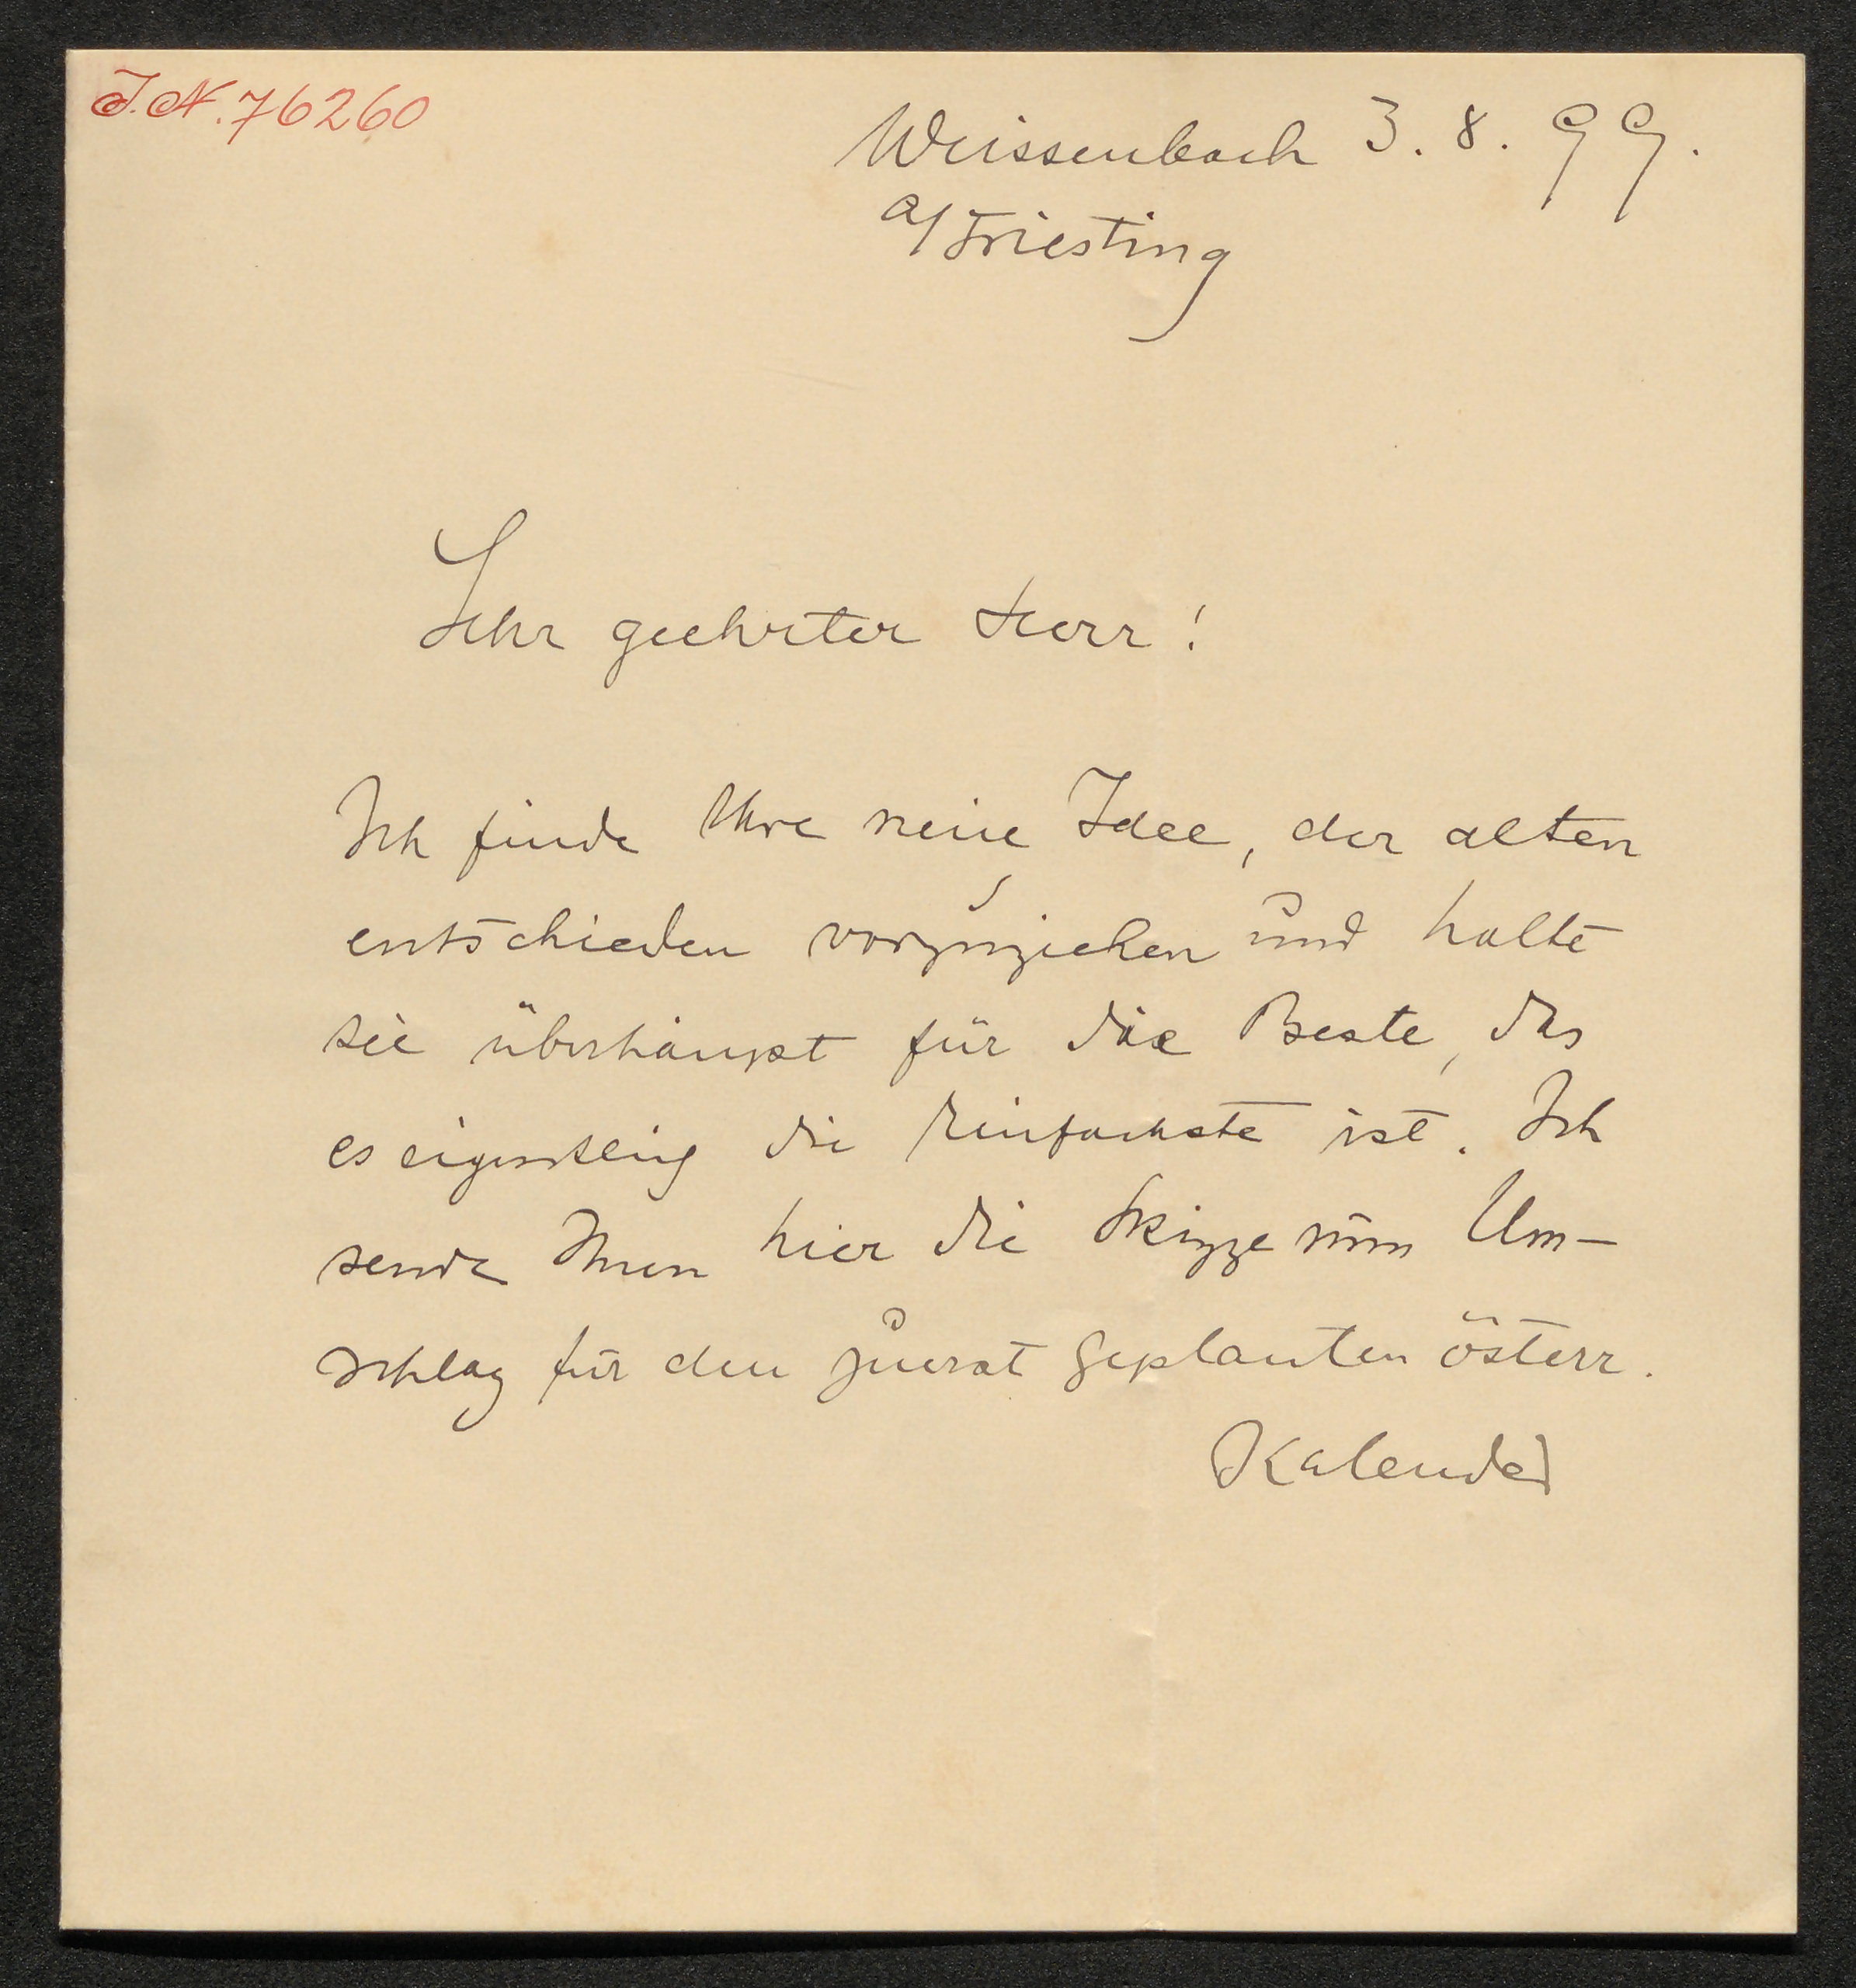 J.N. 76260
Weissenbach 3. 8. 99.
a/Triesting
Sehr geehrter Herr!
Ich finde Ihre neue Idee, der alten
entschieden vorzuziehen und halte
sie überhaupt für die Beste, das
es eigentlich die Einfachste ist. Ich
sende Ihnen hier die Skizze zum Um-
schlag für den zuerst geplanten österr.
Kalender